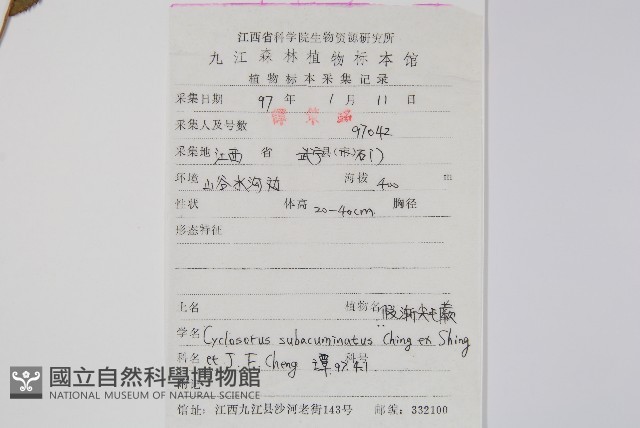 江西省科学院生物资源研究所
九江森林植物标本馆
植物标本采集记录
采集日期 97 年 1 月 11 日
采集人及号数 97042
采集地 江西 省 武宁县(市)石门
环境 山谷水沟边 海拔 400 m
性状 体高 20-40cm 胸径
形态特征
土名 植物名 假渐尖毛蕨
学名 Cyclosorus subacuminatus Ching ex Shing
科名 et J. F. Cheng 谭 97.4.1 科号
附记
馆址:江西九江县沙河老街143号 邮编:332100
國立自然科學博物館
NATIONAL MUSEUM OF NATURAL SCIENCE